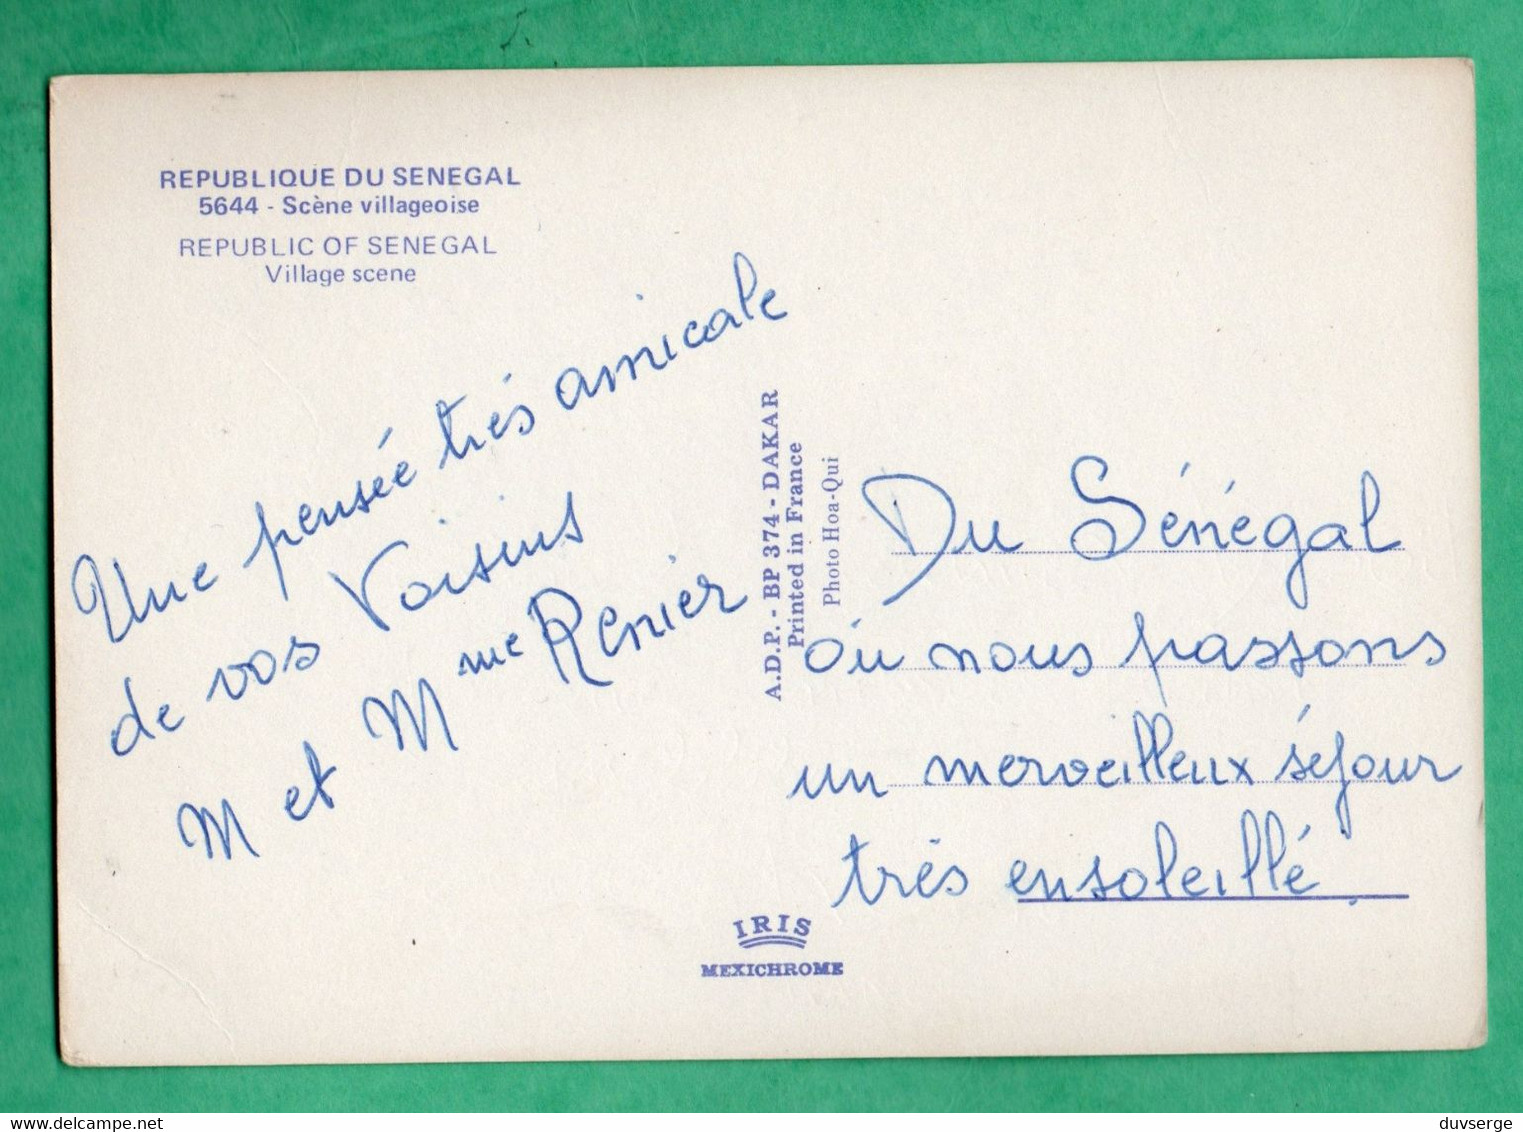 REPUBLIQUE DU SENEGAL
5644 - Scène villageoise
REPUBLIC OF SENEGAL
Village scene
Une pensée très amicale
de vos Voisins
M et Mme Renier
A.D.P. - BP 374 - DAKAR
Printed in France
Photo Hoa-Qui
Du Sénégal
où nous passons
un merveilleux séjour
très ensoleillé.
IRIS
MEXICHROME
duvserge